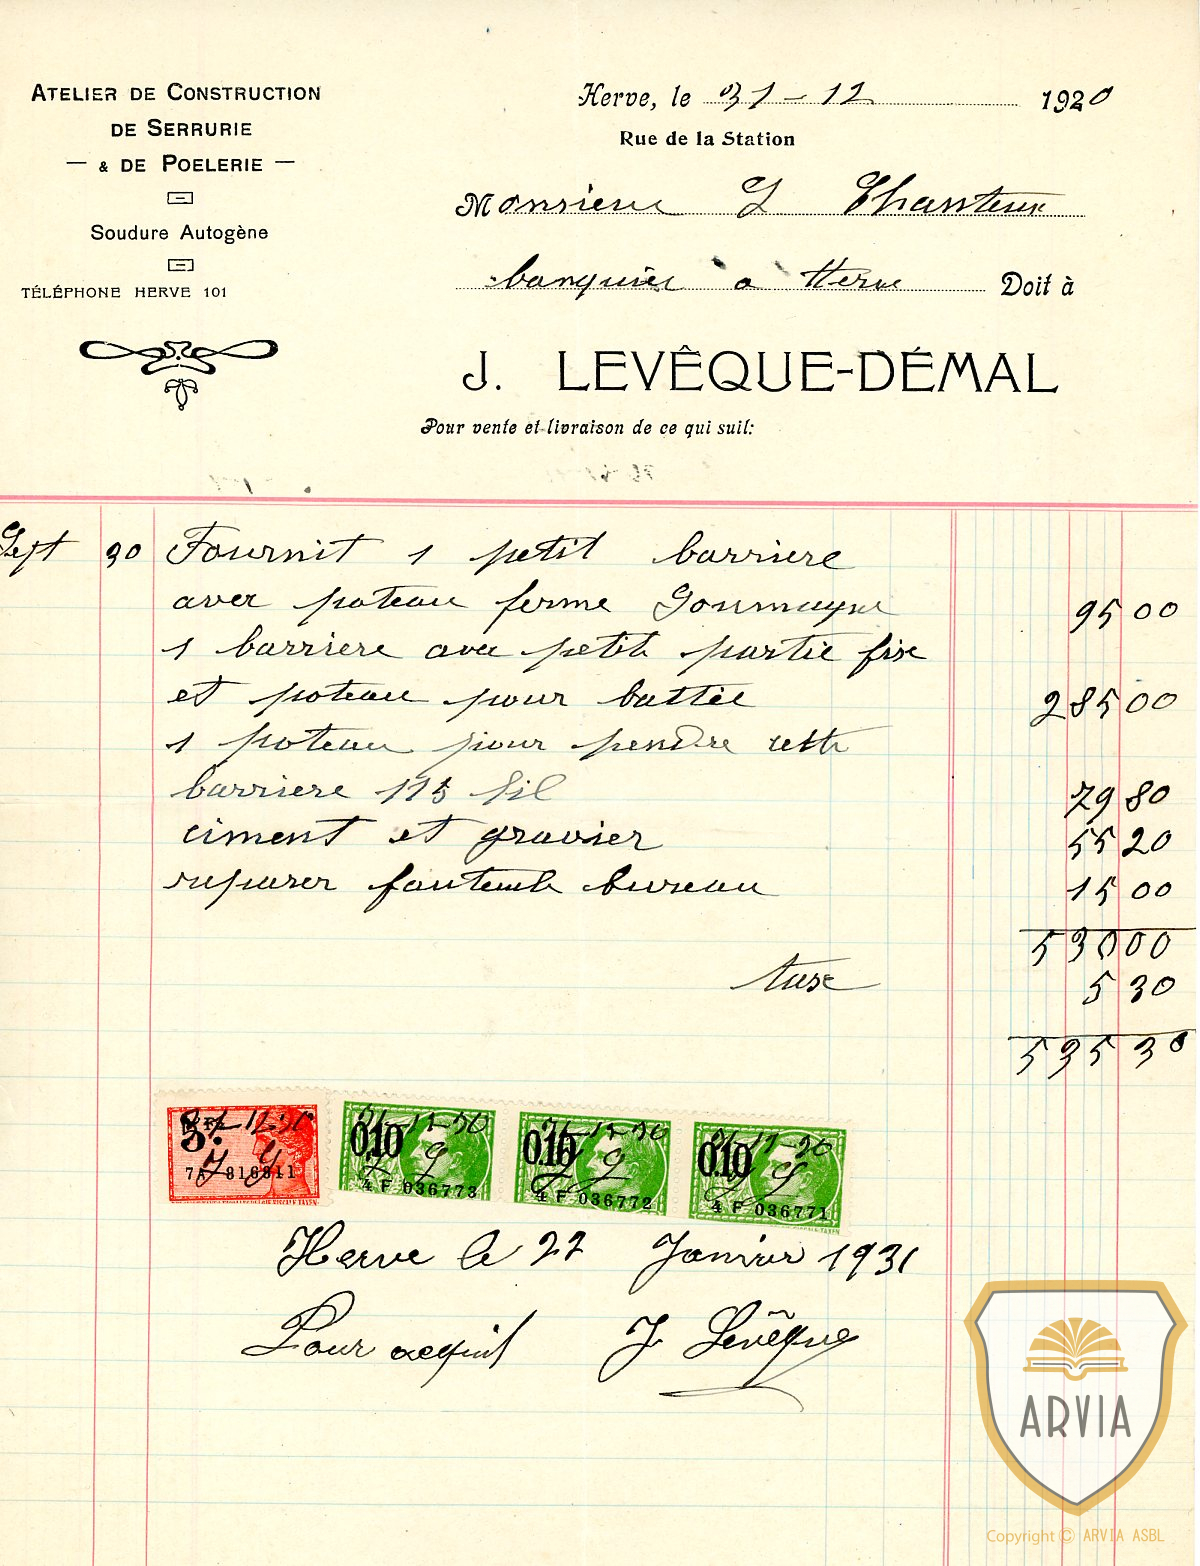 ATELIER DE CONSTRUCTION
DE SERRURIE
— & DE POELERIE —
Soudure Autogène
TÉLÉPHONE HERVE 101
Herve, le 31-12 1930
Rue de la Station
Monsieur J Chanteux
banquier a Herve Doit à
J. LEVÊQUE-DÉMAL
Pour vente et livraison de ce qui suit:
Sept 30 Fournit 1 petit barriere
avec poteau ferme 95 00
1 barriere avec petite partie fixe
et poteau pour battée 285 00
1 poteau pour pendre cette
barriere 115 kil 79 80
ciment et gravier 55 20
reparer fauteuil bureau 15 00
530 00
taxe 5 30
535 30
31-12-30 31-12-30 31-12-30 31-12-30
0.10 0.10 0.10
4 F 036773 4 F 036772 4 F 036771
Herve le 22 Janvier 1931
Pour acquit J Levêque
ARVIA
Copyright © ARVIA ASBL